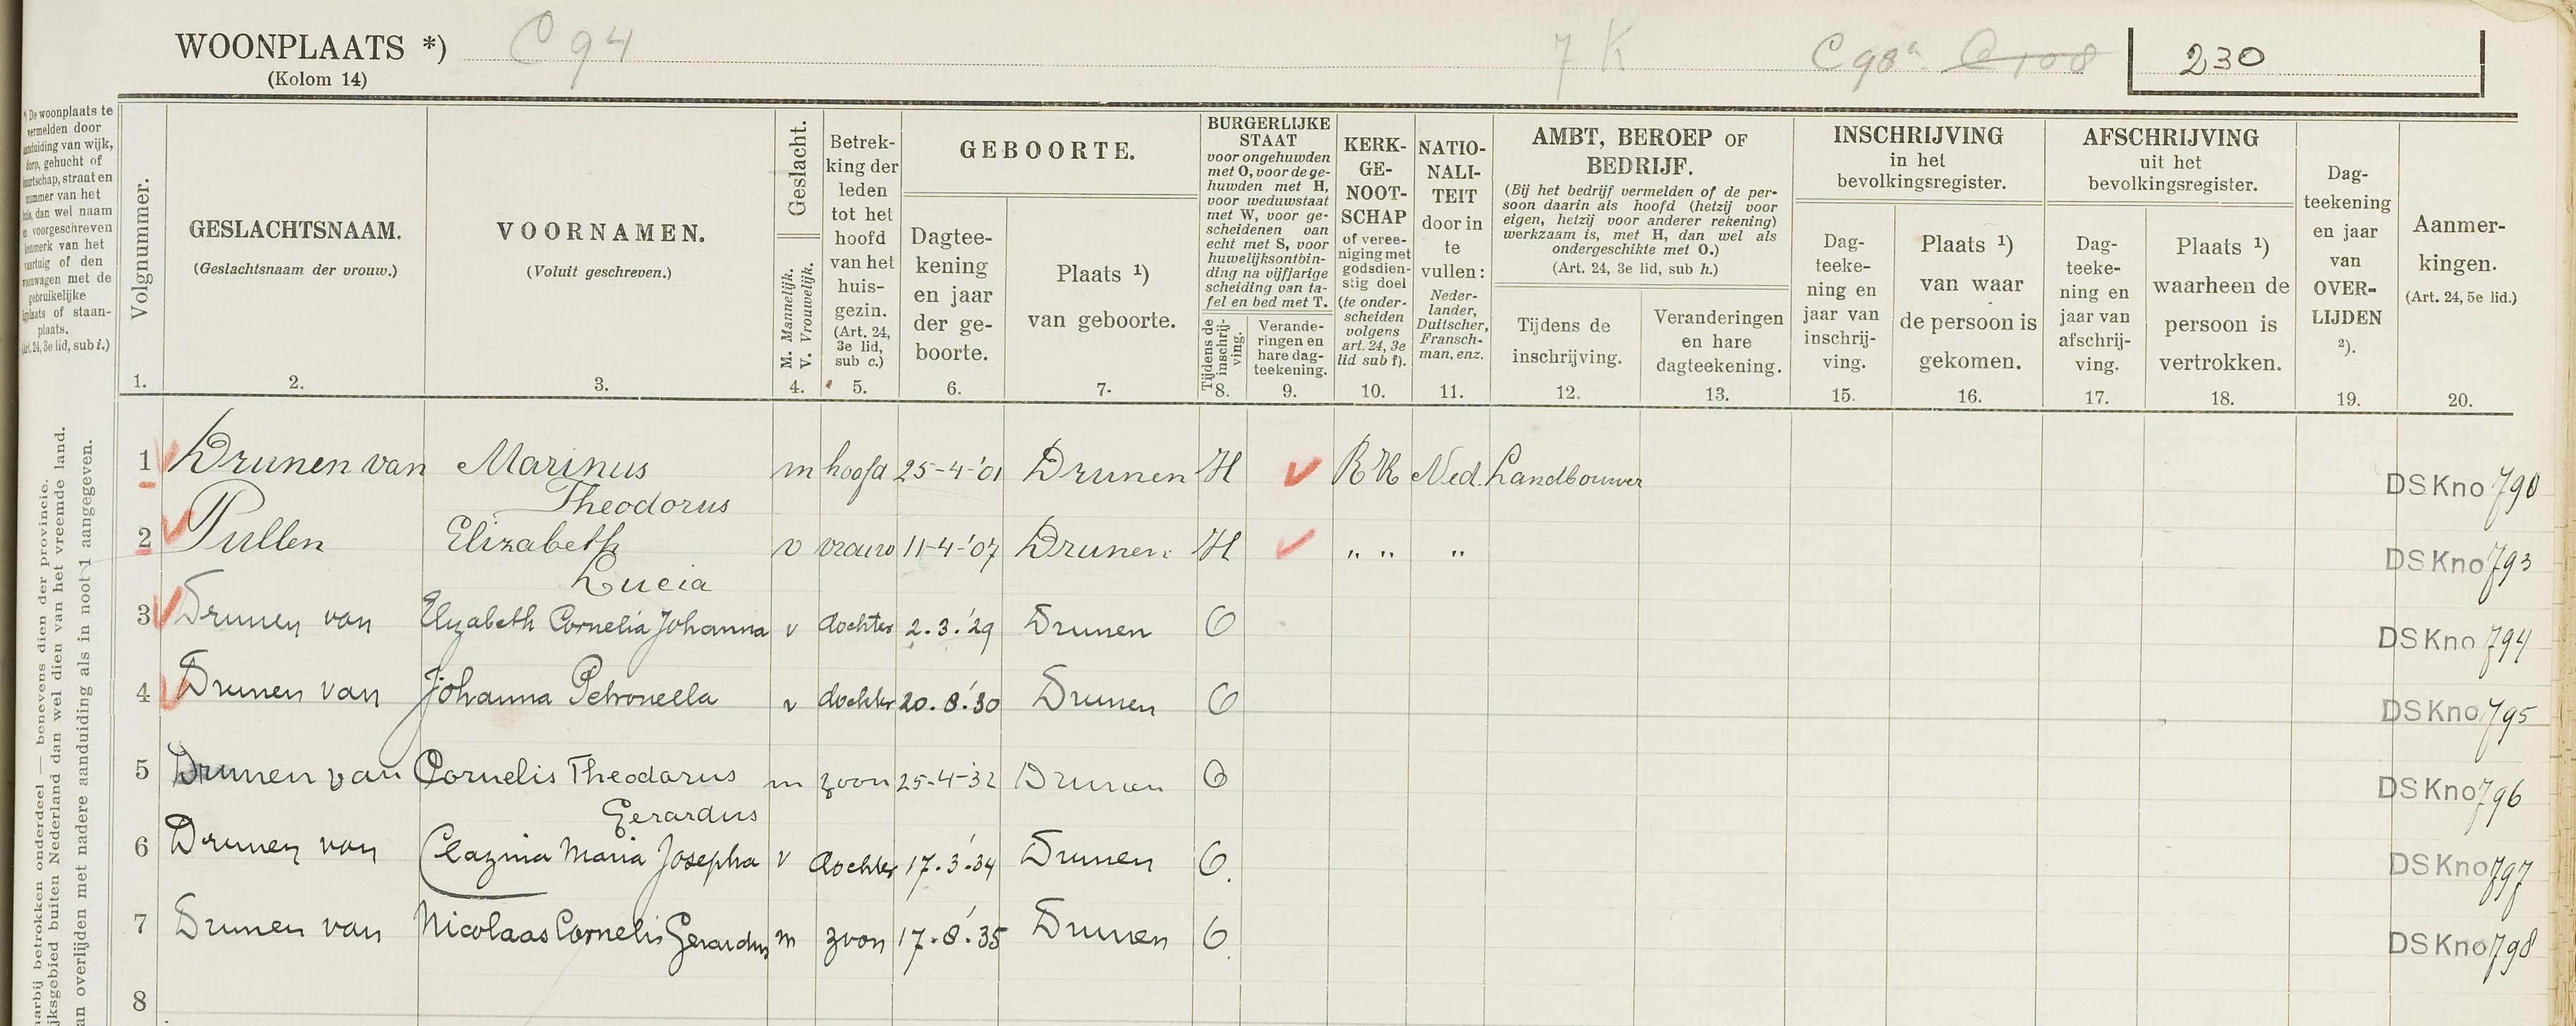 WOONPLAATS *) C 94 7 K C 98a C 108 230
(Kolom 14)
*) De woonplaats te
vermelden door
aanduiding van wijk,
dorp, gehucht of
buurtschap, straat en
nummer van het
huis, dan wel naam
en voorgeschreven
kenmerk van het
vaartuig of den
woonwagen met de
gebruikelijke
ligplaats of staan-
plaats.
(Art. 24, 3e lid, sub i.)
Volgnummer.
1.
GESLACHTSNAAM.
(Geslachtsnaam der vrouw.)
2.
VOORNAMEN.
(Voluit geschreven.)
3.
Geslacht.
M. Mannelijk.
V. Vrouwelijk.
4.
Betrek-
king der
leden
tot het
hoofd
van het
huis-
gezin.
(Art. 24,
3e lid,
sub c.)
5.
GEBOORTE.
Dagtee-
kening
en jaar
der ge-
boorte.
6.
Plaats ¹)
van geboorte.
7.
BURGERLIJKE
STAAT
voor ongehuwden
met O, voor de ge-
huwden met H,
voor weduwstaat
met W, voor ge-
scheidenen van
echt met S, voor
huwelijksontbin-
ding na vijfjarige
scheiding van ta-
fel en bed met T.
Tijdens de
inschrij-
ving.
8.
Verande-
ringen en
hare dag-
teekening.
9.
KERK-
GE-
NOOT-
SCHAP
of veree-
niging met
godsdien-
stig doel
(te onder-
scheiden
volgens
art. 24, 3e
lid sub f).
10.
NATIO-
NALI-
TEIT
door in
te
vullen:
Neder-
lander,
Duitscher,
Fransch-
man, enz.
11.
AMBT, BEROEP OF
BEDRIJF.
(Bij het bedrijf vermelden of de per-
soon daarin als hoofd (hetzij voor
eigen, hetzij voor anderer rekening)
werkzaam is, met H, dan wel als
ondergeschikte met O.)
(Art. 24, 3e lid, sub h.)
Tijdens de
inschrijving.
12.
Veranderingen
en hare
dagteekening.
13.
INSCHRIJVING
in het
bevolkingsregister.
Dag-
teeke-
ning en
jaar van
inschrij-
ving.
15.
Plaats ¹)
van waar
de persoon is
gekomen.
16.
AFSCHRIJVING
uit het
bevolkingsregister.
Dag-
teeke-
ning en
jaar van
afschrij-
ving.
17.
Plaats ¹)
waarheen de
persoon is
vertrokken.
18.
Dag-
teekening
en jaar
van
OVER-
LIJDEN
²).
19.
Aanmer-
kingen.
(Art. 24, 5e lid.)
20.
1 Drunen van Marinus m hoofd 25-4-'01 Drunen H RK Ned. Landbouwer DSKno 790
Theodorus
2 Pullen Elizabeth v vrouw 11-4-'07 Drunen H " " " DSKno 793
Lucia
3 Drunen van Elyzabeth Cornelia Johanna v dochter 2.3.'29 Drunen O DSKno 794
4 Drunen van Johanna Petronella v dochter 20.8.'30 Drunen O DSKno 795
5 Drunen van Cornelis Theodorus m zoon 25-4-'32 Drunen O DSKno 796
Gerardus
6 Drunen van Clazina Maria Josepha v dochter 17.3.'34 Drunen O. DSKno 797
7 Drunen van Nicolaas Cornelis Gerardus m zoon 17.8.'35 Drunen O. DSKno 798
8
aarbij betrokken onderdeel — benevens dien der provincie.
jksgebied buiten Nederland dan wel dien van het vreemde land.
an overlijden met nadere aanduiding als in noot 1 aangegeven.